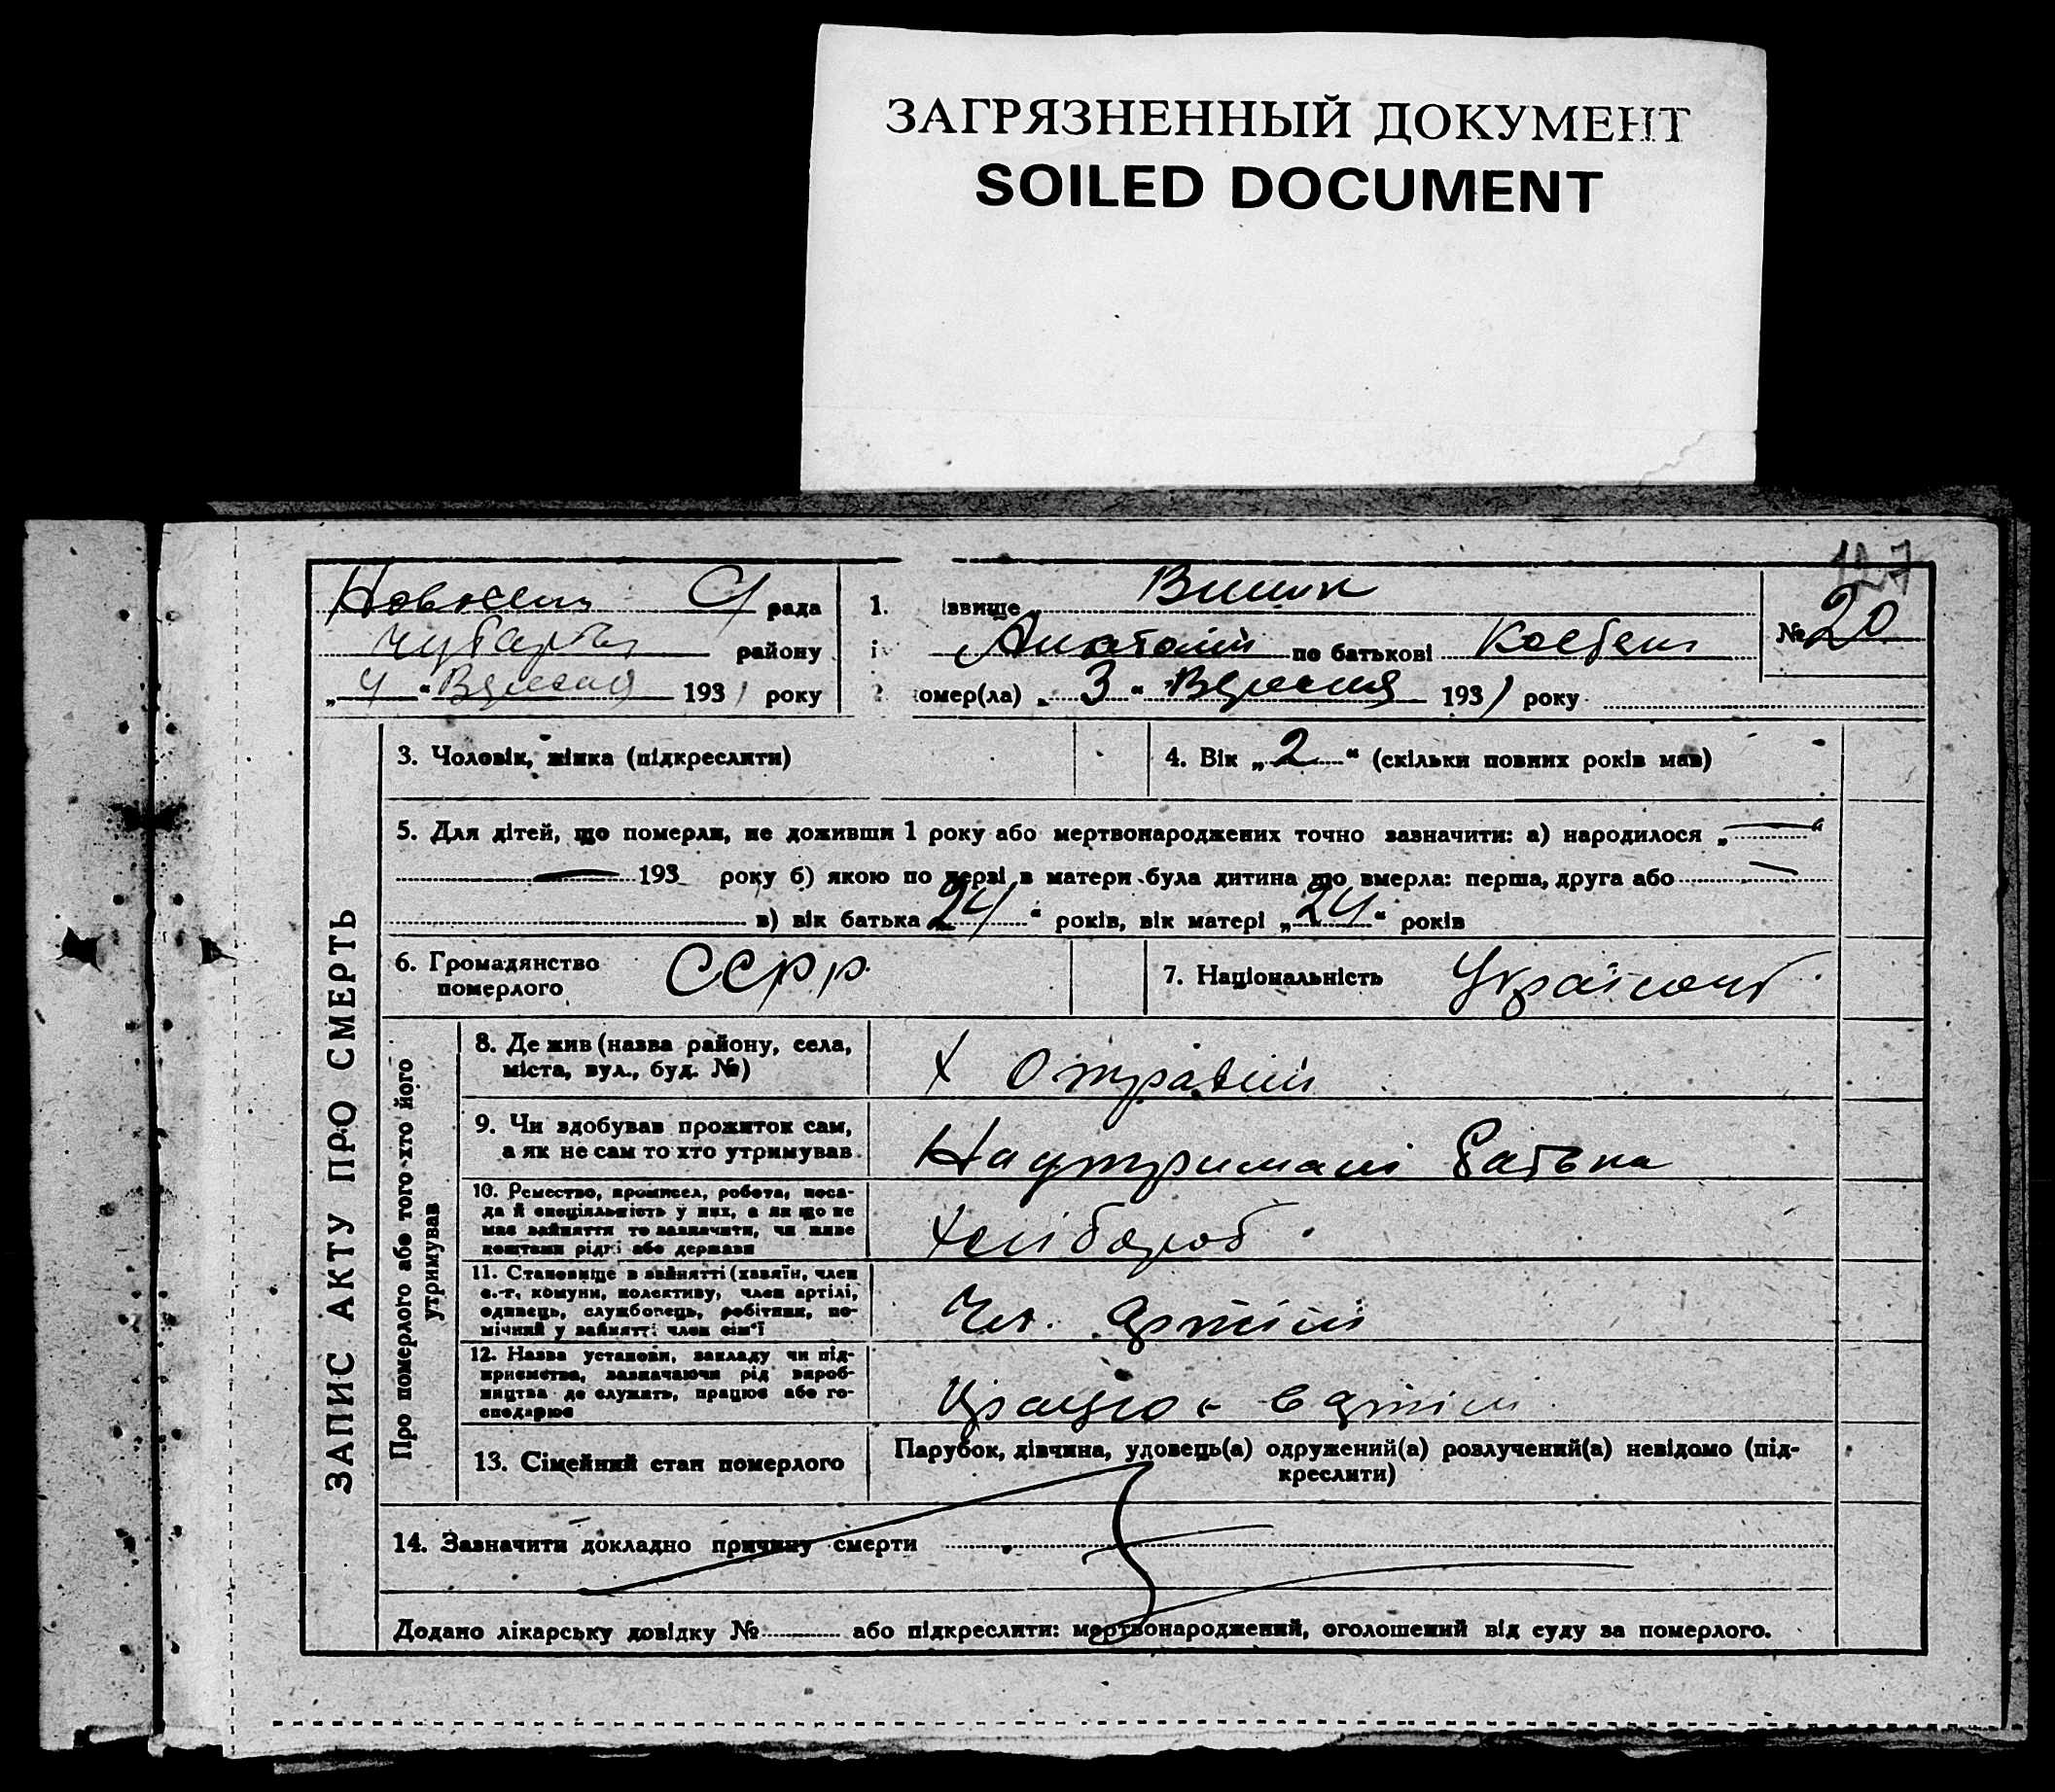 ЗАГРЯЗНЕННЫЙ ДОКУМЕНТ
SOILED DOCUMENT
127
рада
району
„ 4 “ Вересня 1931 року
1. ізвище
Анатолій по батькові
омер(ла) „ 3 “ Вересня 1931 року
№ 20
ЗАПИС АКТУ ПРО СМЕРТЬ
3. Чоловік, жінка (підкреслити)
4. Вік „ 2 “ (скільки повних років мав)
5. Для дітей, що померли, не доживши 1 року або мертвонароджених точно зазначити: а) народилося „ — “
— 193 року б) якою по черзі в матери була дитина що вмерла: перша, друга або —
в) вік батька 24 “ років, вік матері „ 24 “ років
6. Громадянство
померлого
СССР р.
7. Національність
Про померлого або того хто його
утримував
8. Де жив (назва району, села,
міста, вул., буд. №)
Х
9. Чи здобував прожиток сам,
а як не сам то хто утримував
На утримані батька
10. Ремество, промисел, робота, поса-
да й спеціяльність у них, а як що не
має зайняття то зазначити, чи живе
коштами рідні або держави
Хлібороб
11. Становище в зайнятті (хазяїн, член
с.-г. комуни, колективу, член артілі,
одинець, службовець, робітник, по-
мічний у зайнятті член сім'ї
Чл. артілі
12. Назва установи, закладу чи під-
приємства, зазначаючи рід вироб-
ництва де служить, працює або го-
сподарює
Працює в артілі
13. Сімейний стан померлого
Парубок, дівчина, удовець(а) одружений(а) розлучений(а) невідомо (під-
креслити)
14. Зазначити докладно причину смерти
Додано лікарську довідку № або підкреслити: мертвонароджений, оголошений від суду за померлого.